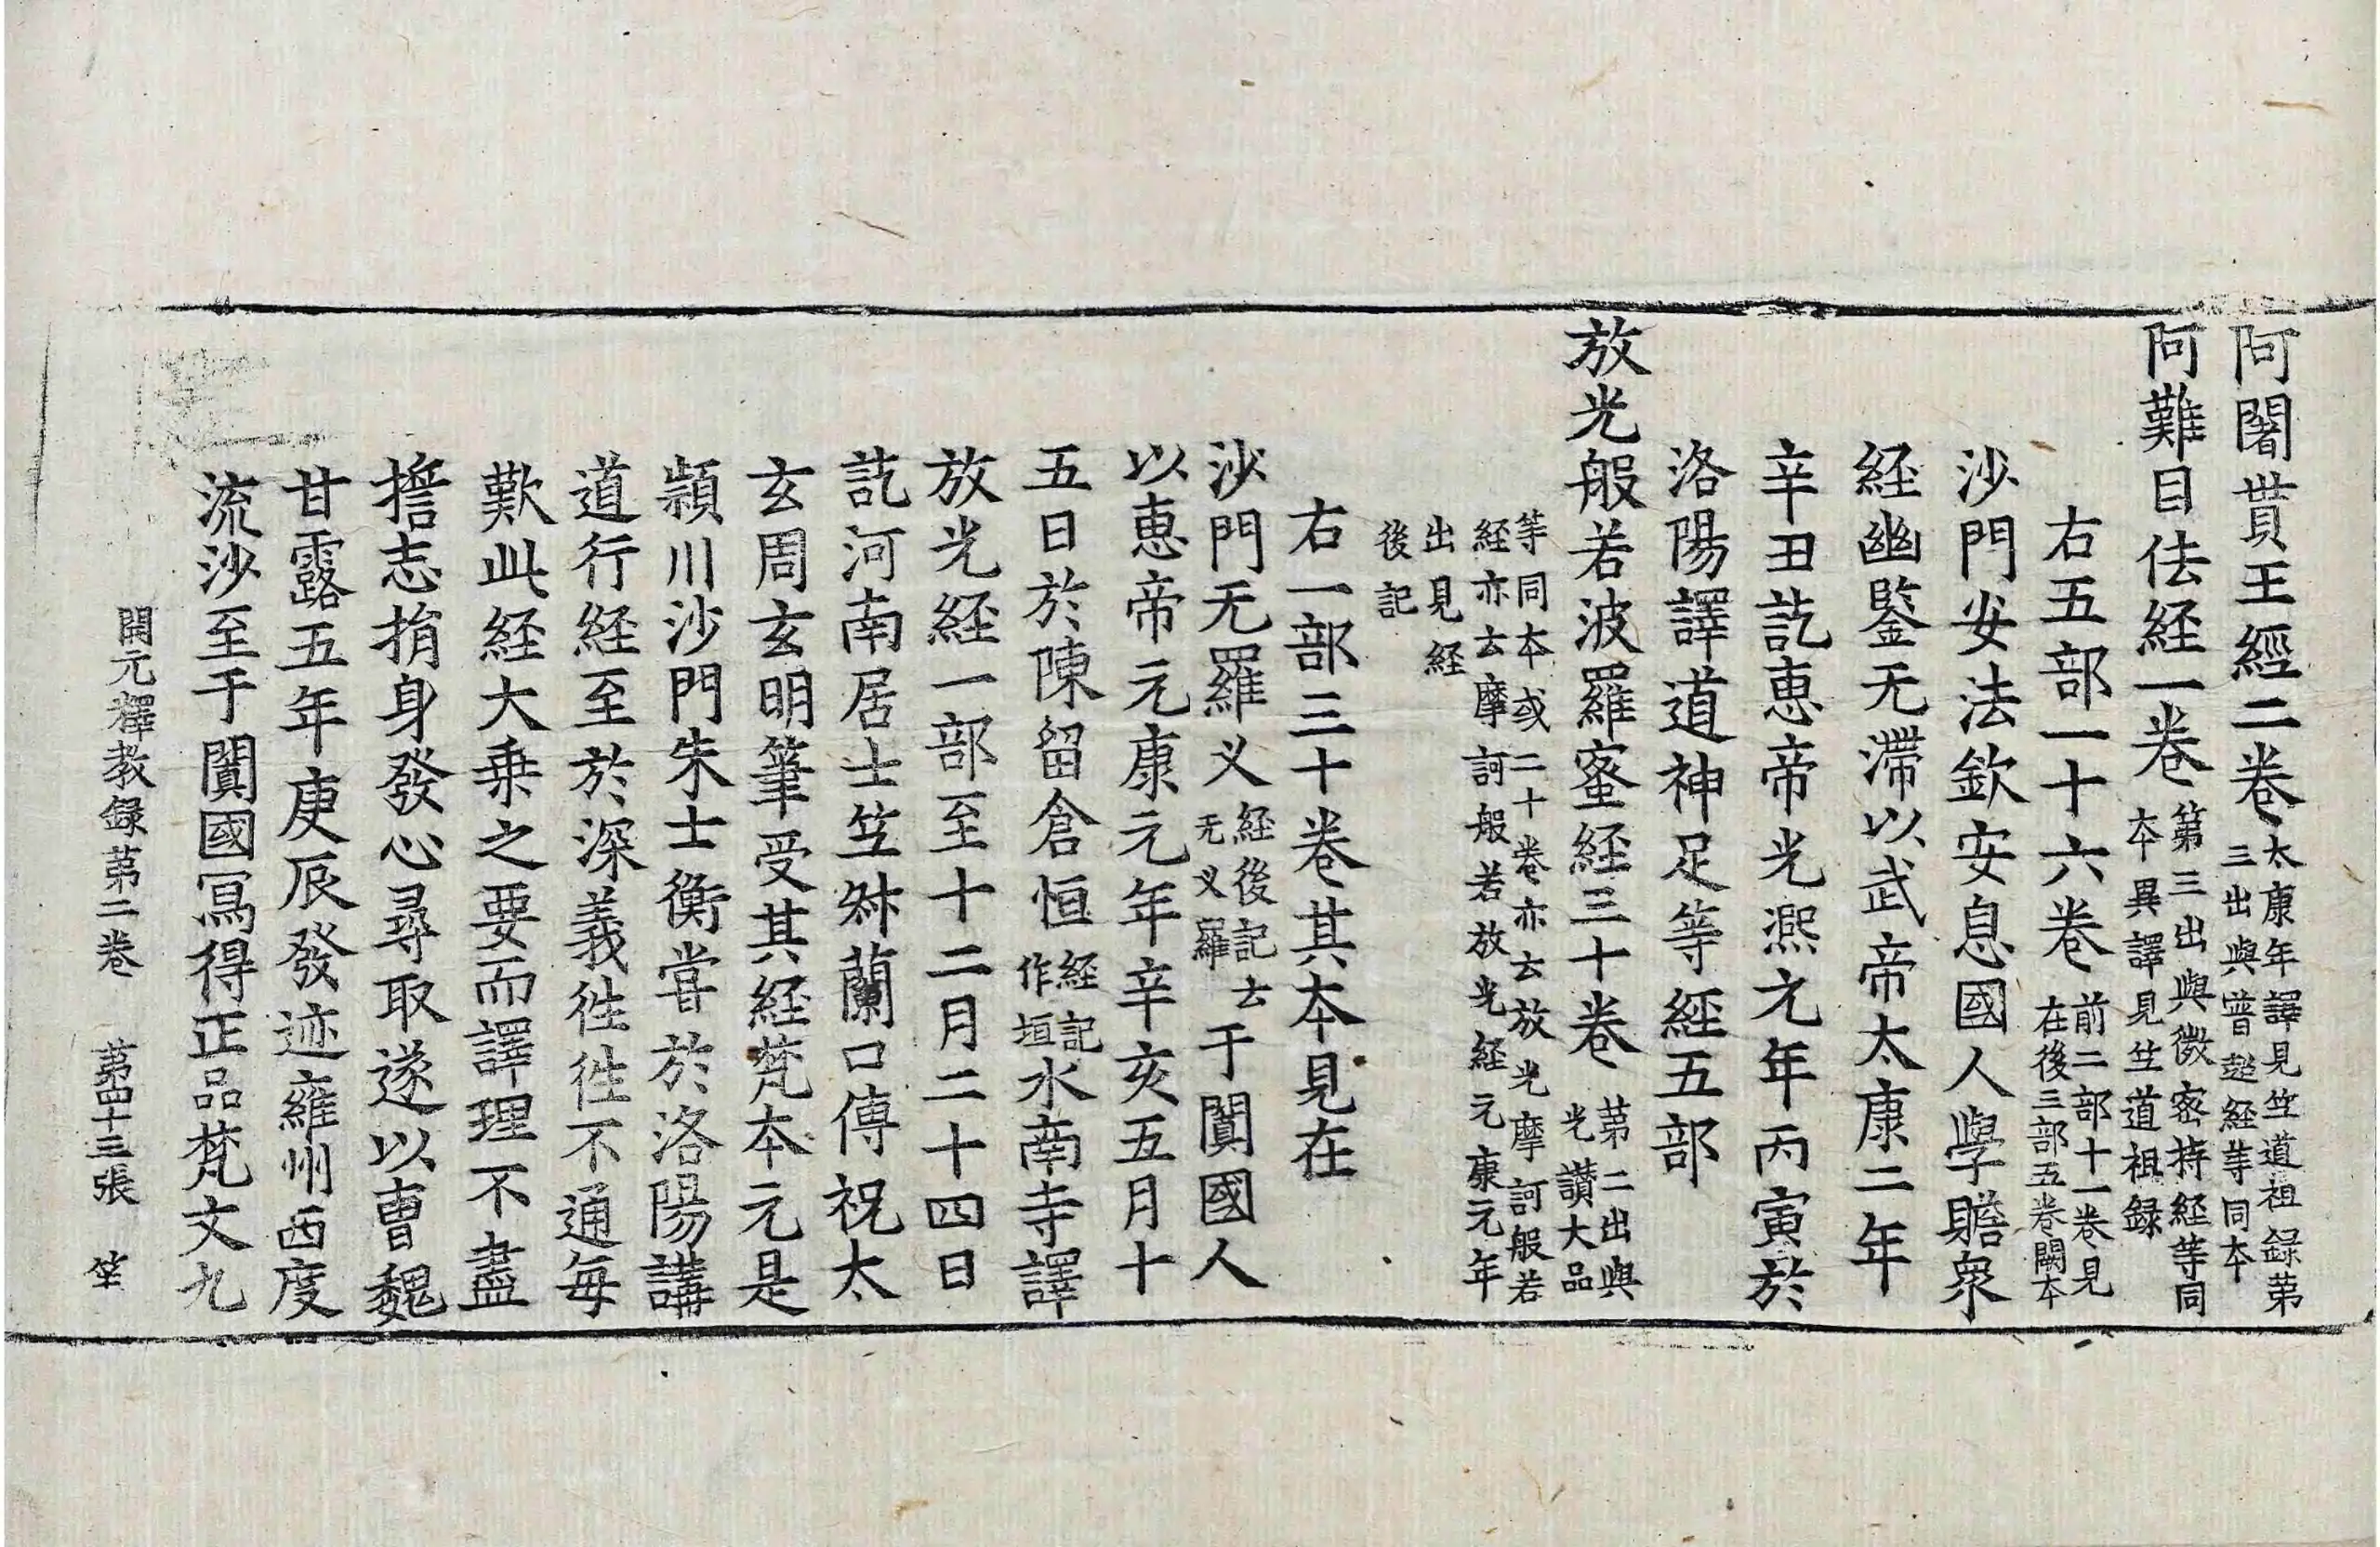 阿闍貰王經二卷太康年譯見竺道祖錄苐三出與普超経等同本
阿難目佉経一卷第三出與微密持経等同本異譯見竺道祖録
右五部一十六卷前二部十一卷見在後三部五卷闕本
沙門安法欽安息國人學贍衆
経幽鑒无滯以武帝太康二年
辛丑訖惠帝光熈元年丙寅於
洛陽譯道神足等経五部
放光般若波羅蜜経三十卷苐二出與光讚大品
等同本或二十卷亦云放光摩訶般若経亦云摩訶般若放光経元康元年
出見経後記
右一部三十卷其本見在
沙門无羅乂経後記云无乂羅于闐國人
以惠帝元康元年辛亥五月十
五日於陳留倉恒経記作垣水南寺譯
放光経一部至十二月二十四日
訖河南居士竺叔蘭口傳祝太
玄周玄明筆受其経梵本元是
潁川沙門朱士衡甞於洛陽講
道行経至於深義徃徃不通每
歎此経大乗之要而譯理不盡
擔志捐身發心尋取遂以曺魏
甘露五年庚辰發迹雍州西度
流沙至于闐國寫得正品梵文九
開元釋教録苐二卷 苐四十三張 笙